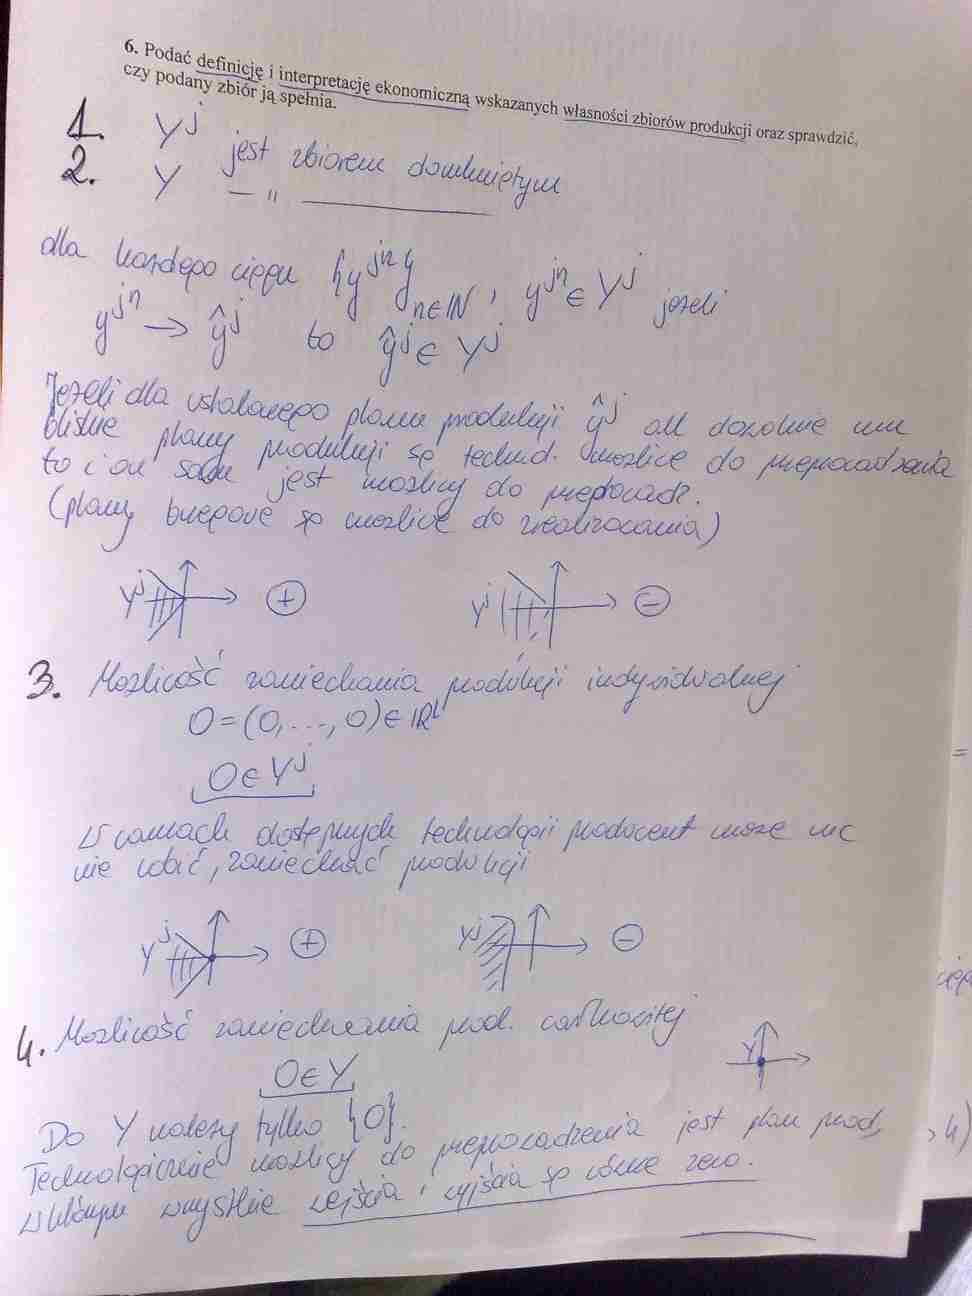 6. Podać definicję i interpretację ekonomiczną wskazanych własności zbiorów produkcji oraz sprawdzić,
czy podany zbiór ją spełnia.
1. Y^j jest zbiorem domkniętym
2. Y — " —
dla każdego ciągu {y^{jn}}_{n∈IN}, y^{jn} ∈ Y^j jeżeli
y^{jn} → ŷ^j to ŷ^j ∈ Y^j
Jeżeli dla ustalonego planu produkcji ŷ^j dowolnie mu
bliskie plany produkcji są technol. możliwe do przeprowadzenia
to i on sam jest możliwy do przeprowadz.
(plany brzegowe są możliwe do zrealizowania)
Y^j (+) Y^j (−)
3. Możliwość zaniechania produkcji indywidualnej
0=(0,...,0)∈IR^L
0∈Y^j
W ramach dostępnych technologii producent może nic
nie robić, zaniechać produkcji
Y^j (+) Y^j (−)
4. Możliwość zaniechania prod. całkowitej
0∈Y
Y
Do Y należy tylko {0}.
Technologicznie możliwy do przeprowadzenia jest plan prod,
w którym wszystkie wejścia i wyjścia są równe zero.
=
, 4)